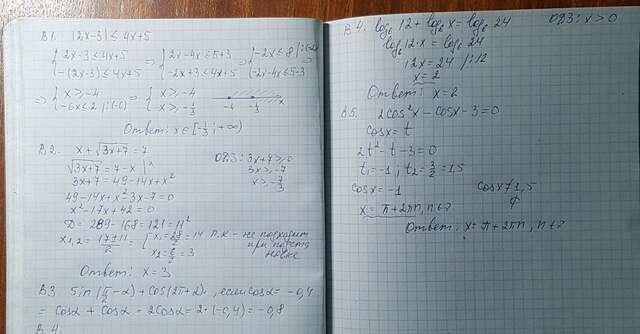 B1. |2x-3| ≤ 4x+5
{2x-3≤4x+5 ⇒ {2x-4x≤5+3 ⇒ {-2x≤8 |:(-2) ⇒
{-(2x-3)≤4x+5 {-2x+3≤4x+5 {-2x-4x≤5-3
⇒ {x≥-4 ⇒ {x≥-4
{-6x≤2 |:(-6) {x≥-1/3 -4 -1/3 x
Ответ: x∈[-1/3; +∞)
B2. x+√3x+7=7
√3x+7=7-x |² ОДЗ: 3x+7≥0
3x+7=49-14x+x² 3x≥-7
49-14x+x²-3x-7=0 x≥-7/3
x²-17x+42=0
D=289-168=121=11²
x1,2=17±11/2=[x1=28/2=14 П.К - не подходит
при подста
x2=6/2=3 новке
Ответ: x=3
B3 Sin(π/2-α)+cos(2π+α), если cosα=-0,4
=cosα+cosα=2cosα=2·(-0,4)=-0,8
B4.
B4. log₆12+log₆x=log₆24 ОДЗ: x>0
log₆12·x=log₆24
12x=24 |:12
x=2
Ответ: x=2
B5. 2cos²x-cosx-3=0
cosx=t
2t²-t-3=0
t1=-1; t2=3/2=1,5
cosx=-1 cosx≠1,5
x=π+2πn, n∈z ∅
Ответ: x=π+2πn, n∈z